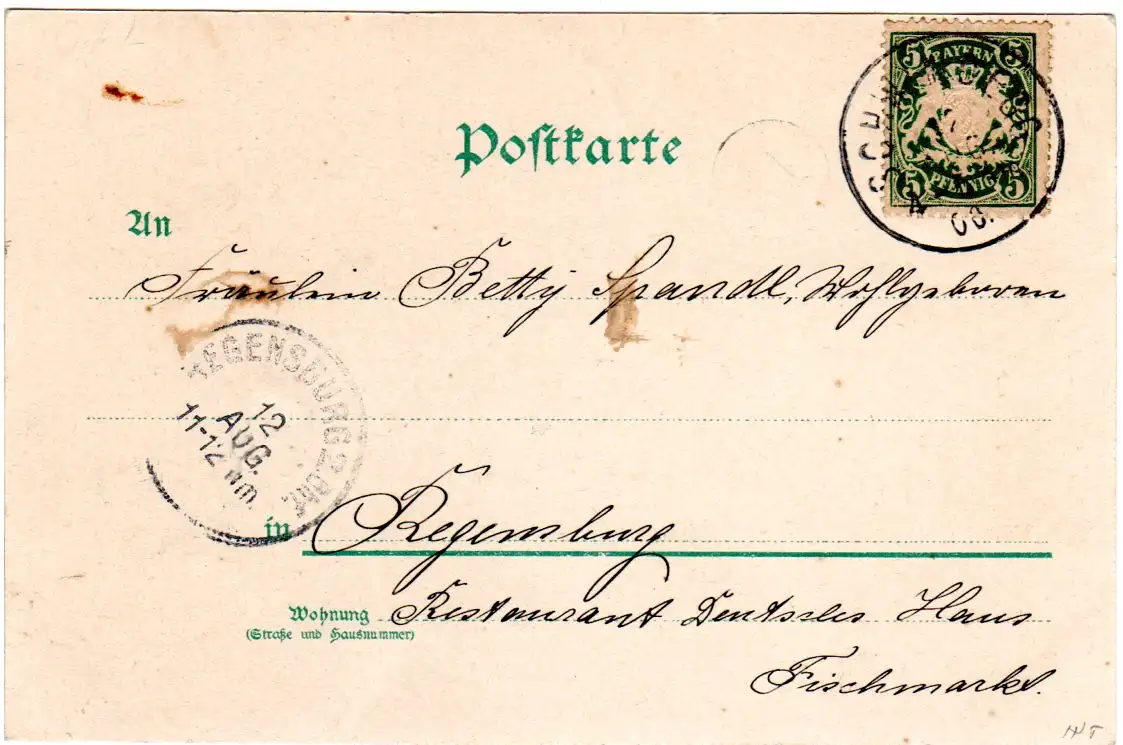 5 BAYERN 5
5 PFENNIG 5
00.
Postkarte
An
Fräulein Betty Spandl, Wohlgeboren
REGENSBURG
12
AUG.
11-12 Nm.
in Regensburg
Wohnung Restaurant Deutsches Haus
(Straße und Hausnummer)
Fischmarkt.